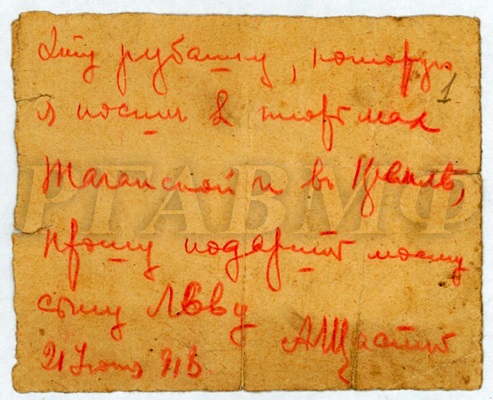 Эту рубашку, которую
1
я носил в тюрьмах
Таганской и въ Кремлѣ,
РГАВМФ
прошу подарить моему
сыну Льву
АЩастный
21 Iюня 918